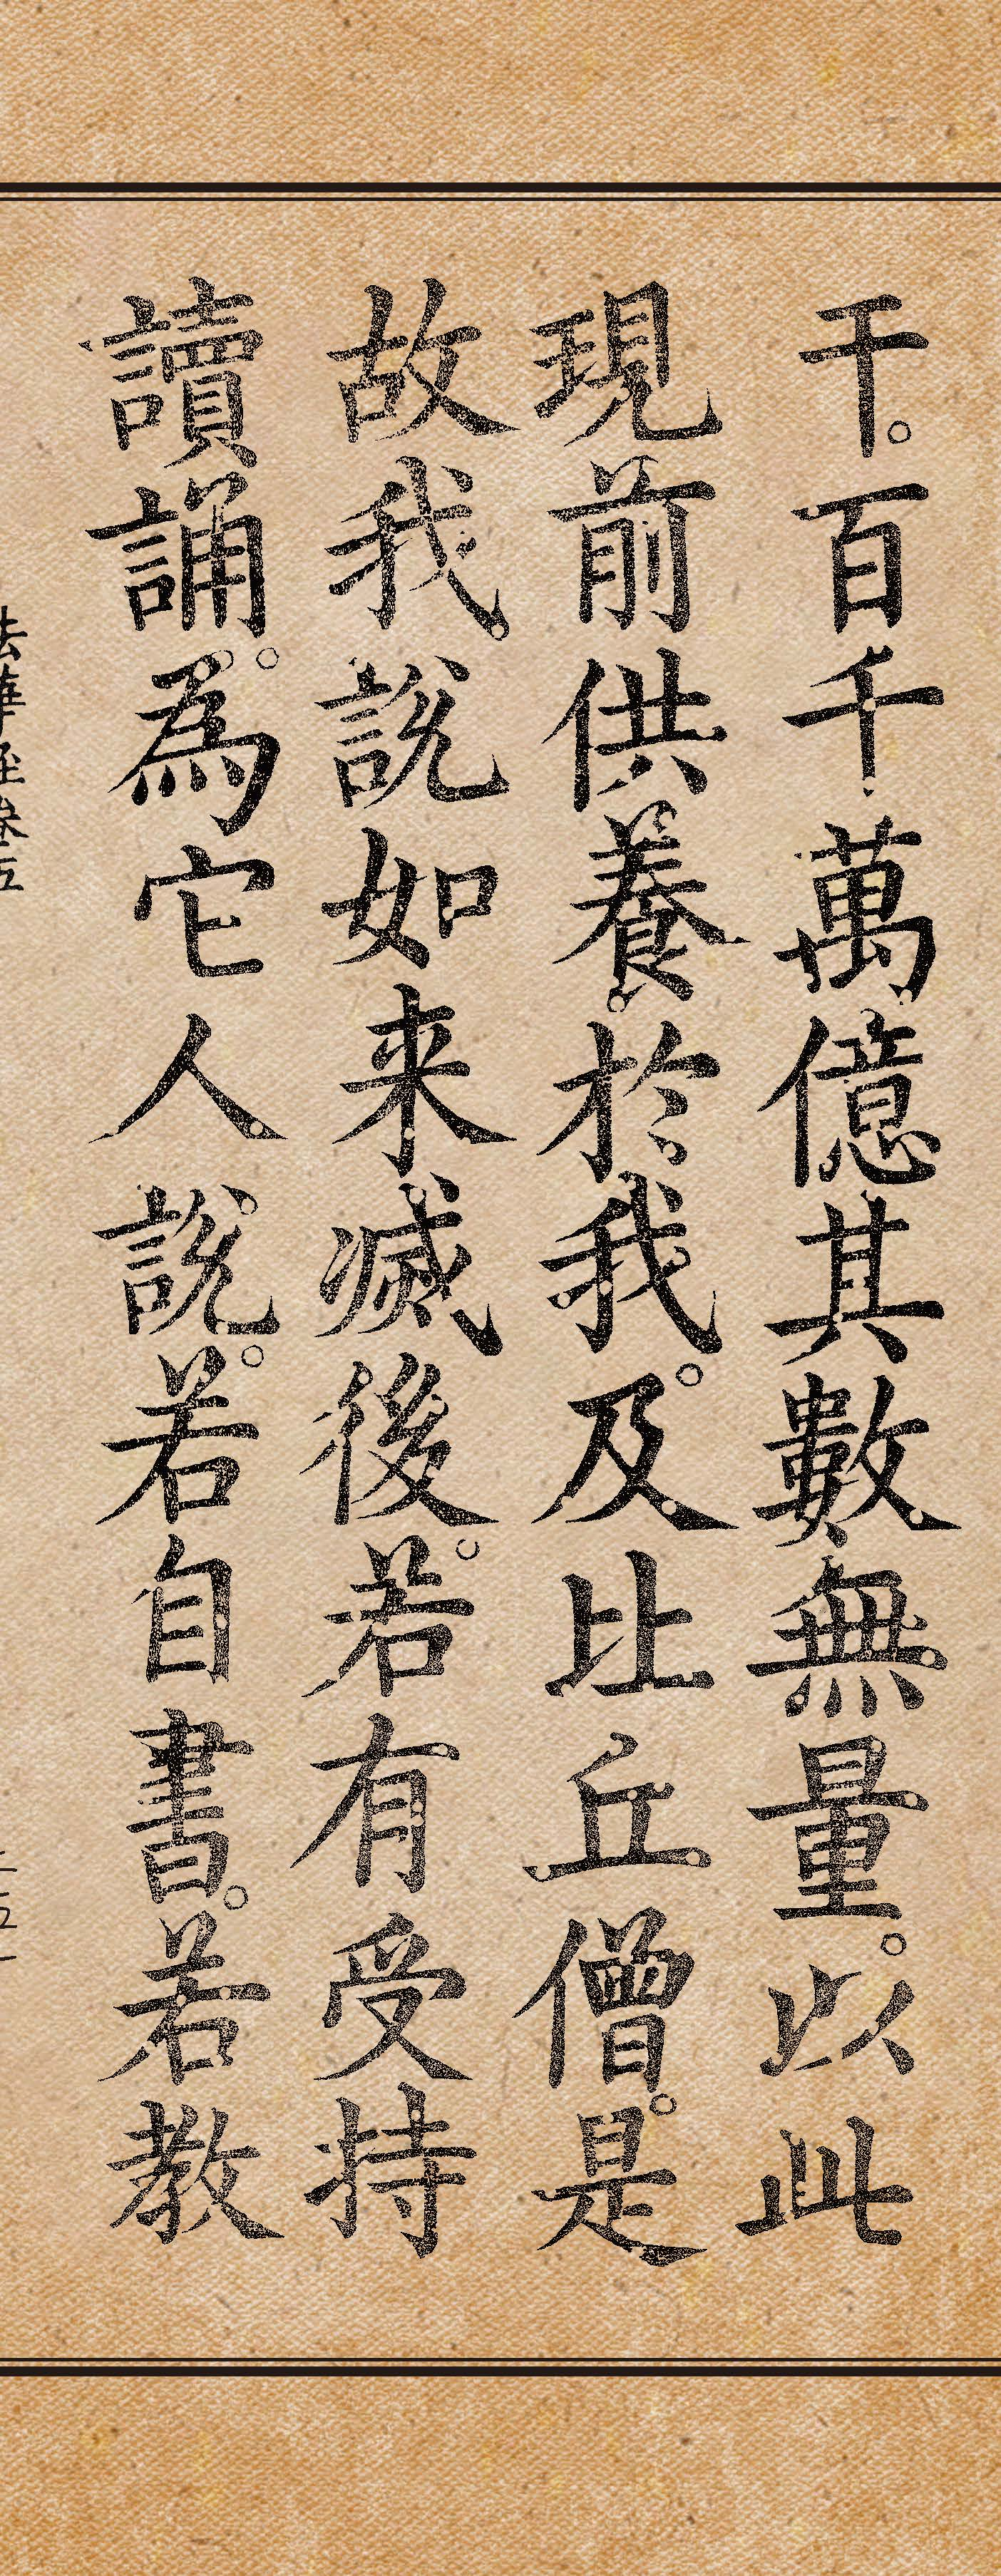 干。百千萬億其數無量。以此
現前供養於我。及比丘僧。是
故我說如来滅後。若有受持
讀誦。為它人說。若自書。若教